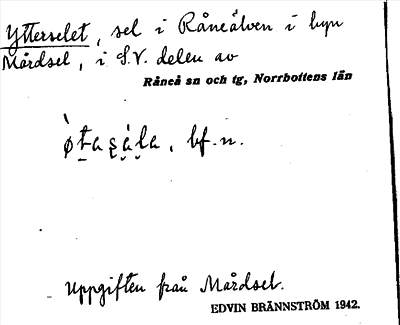 Ytterselet, sel i Råneälven i byn
Mårdsel, i S.V. delen av
Råneå sn och tg, Norrbottens län
bf. n.
Uppgiften från Mårdsel.
EDVIN BRÄNNSTRÖM 1942.